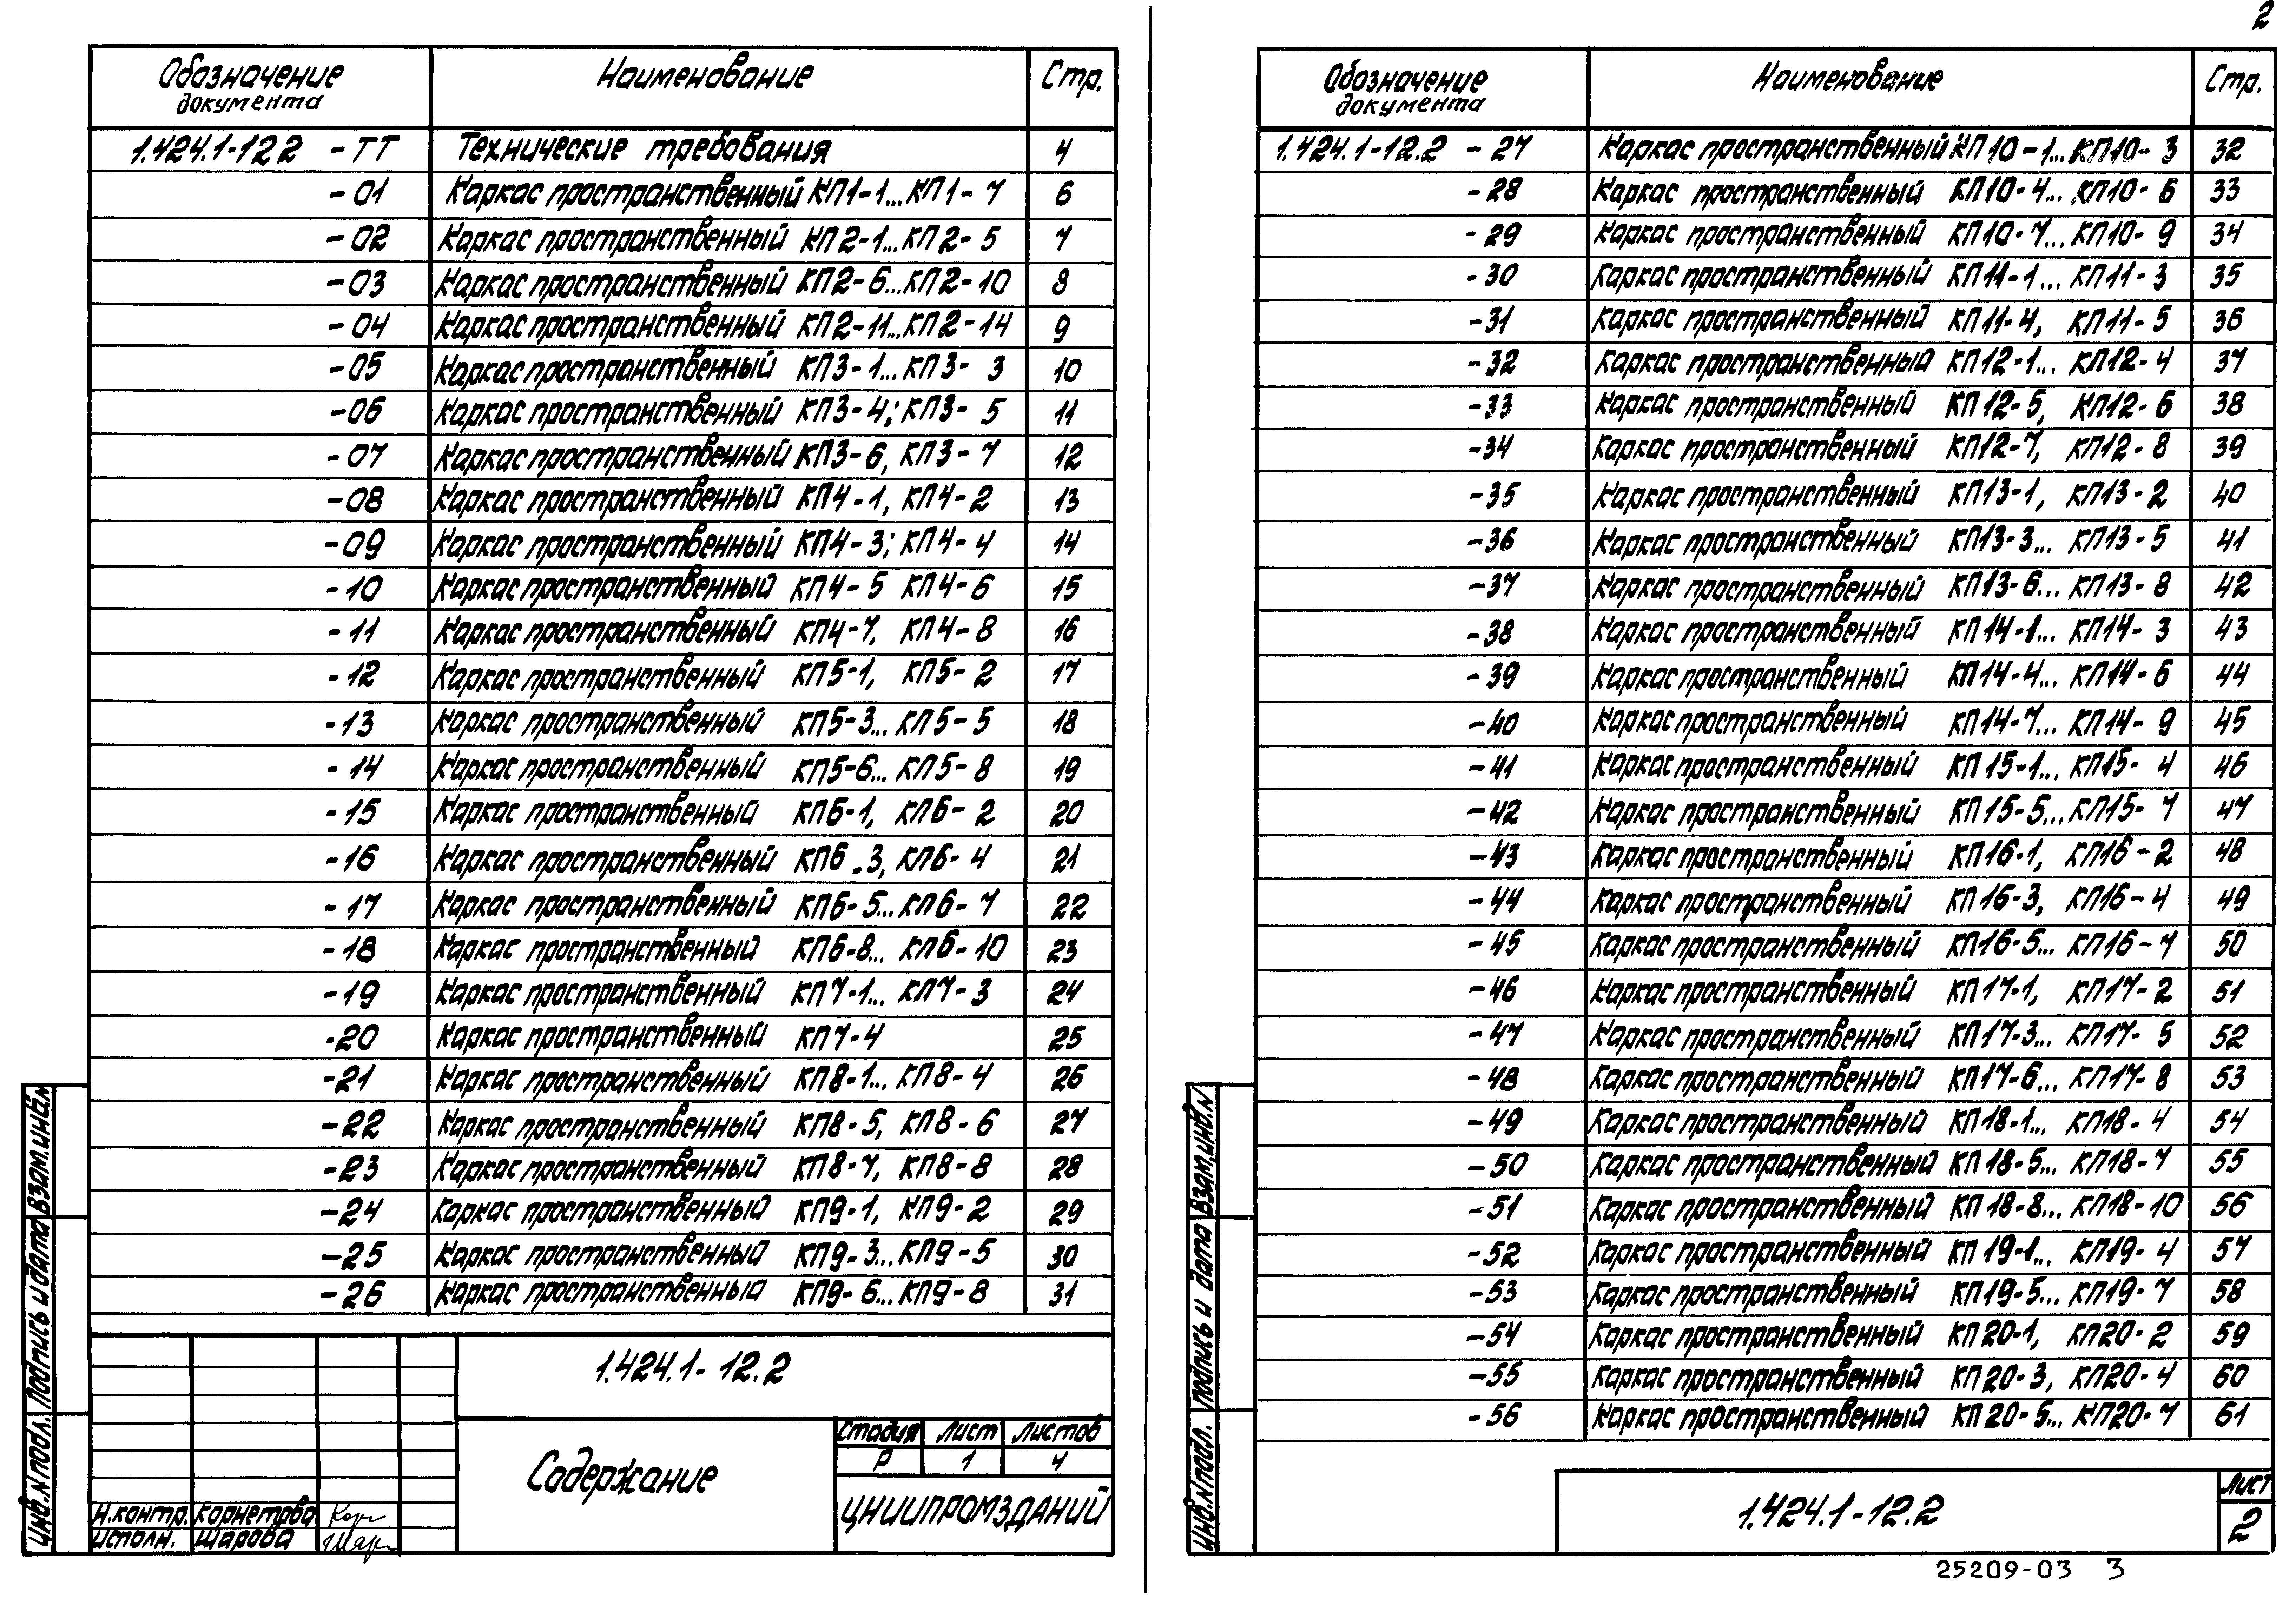 2
Обозначение документа Наименование Стр.
1.424.1-12 2 - ТТ Технические требования 4
- 01 Каркас пространственный КП1-1...КП1-7 6
- 02 Каркас пространственный КП2-1...КП2-5 7
- 03 Каркас пространственный КП2-6...КП2-10 8
- 04 Каркас пространственный КП2-11...КП2-14 9
- 05 Каркас пространственный КП3-1...КП3-3 10
- 06 Каркас пространственный КП3-4; КП3-5 11
- 07 Каркас пространственный КП3-6, КП3-7 12
- 08 Каркас пространственный КП4-1, КП4-2 13
- 09 Каркас пространственный КП4-3; КП4-4 14
- 10 Каркас пространственный КП4-5 КП4-6 15
- 11 Каркас пространственный КП4-7, КП4-8 16
- 12 Каркас пространственный КП5-1, КП5-2 17
- 13 Каркас пространственный КП5-3... КП5-5 18
- 14 Каркас пространственный КП5-6... КП5-8 19
- 15 Каркас пространственный КП6-1, КП6-2 20
- 16 Каркас пространственный КП6-3, КП6-4 21
- 17 Каркас пространственный КП6-5... КП6-7 22
- 18 Каркас пространственный КП6-8... КП6-10 23
- 19 Каркас пространственный КП7-1... КП7-3 24
- 20 Каркас пространственный КП7-4 25
- 21 Каркас пространственный КП8-1... КП8-4 26
- 22 Каркас пространственный КП8-5, КП8-6 27
- 23 Каркас пространственный КП8-7, КП8-8 28
- 24 Каркас пространственный КП9-1, КП9-2 29
- 25 Каркас пространственный КП9-3...КП9-5 30
- 26 Каркас пространственный КП9-6...КП9-8 31
1.424.1-12.2
Содержание
Стадия Лист Листов
Р 1 4
ЦНИИПРОМЗДАНИЙ
Н.контр. Корнетова
Исполн. Шарова
Инв.N подл. Подпись и дата Взам.инв.N
Обозначение документа Наименование Стр.
1.424.1-12.2 - 27 Каркас пространственный КП10-1...КП10-3 32
- 28 Каркас пространственный КП10-4... КП10-6 33
- 29 Каркас пространственный КП10-7...КП10-9 34
- 30 Каркас пространственный КП11-1... КП11-3 35
- 31 Каркас пространственный КП11-4, КП11-5 36
- 32 Каркас пространственный КП12-1... КП12-4 37
- 33 Каркас пространственный КП12-5, КП12-6 38
- 34 Каркас пространственный КП12-7, КП12-8 39
- 35 Каркас пространственный КП13-1, КП13-2 40
- 36 Каркас пространственный КП13-3... КП13-5 41
- 37 Каркас пространственный КП13-6... КП13-8 42
- 38 Каркас пространственный КП14-1... КП14-3 43
- 39 Каркас пространственный КП14-4... КП14-6 44
- 40 Каркас пространственный КП14-7... КП14-9 45
- 41 Каркас пространственный КП15-1... КП15-4 46
- 42 Каркас пространственный КП15-5...КП15-7 47
- 43 Каркас пространственный КП16-1, КП16-2 48
- 44 Каркас пространственный КП16-3, КП16-4 49
- 45 Каркас пространственный КП16-5... КП16-7 50
- 46 Каркас пространственный КП17-1, КП17-2 51
- 47 Каркас пространственный КП17-3... КП17-5 52
- 48 Каркас пространственный КП17-6... КП17-8 53
- 49 Каркас пространственный КП18-1... КП18-4 54
- 50 Каркас пространственный КП18-5... КП18-7 55
- 51 Каркас пространственный КП18-8... КП18-10 56
- 52 Каркас пространственный КП19-1... КП19-4 57
- 53 Каркас пространственный КП19-5... КП19-7 58
- 54 Каркас пространственный КП20-1, КП20-2 59
- 55 Каркас пространственный КП20-3, КП20-4 60
- 56 Каркас пространственный КП20-5... КП20-7 61
1.424.1-12.2
Лист
2
Инв.N подл. Подпись и дата Взам.инв.N
25209-03 3